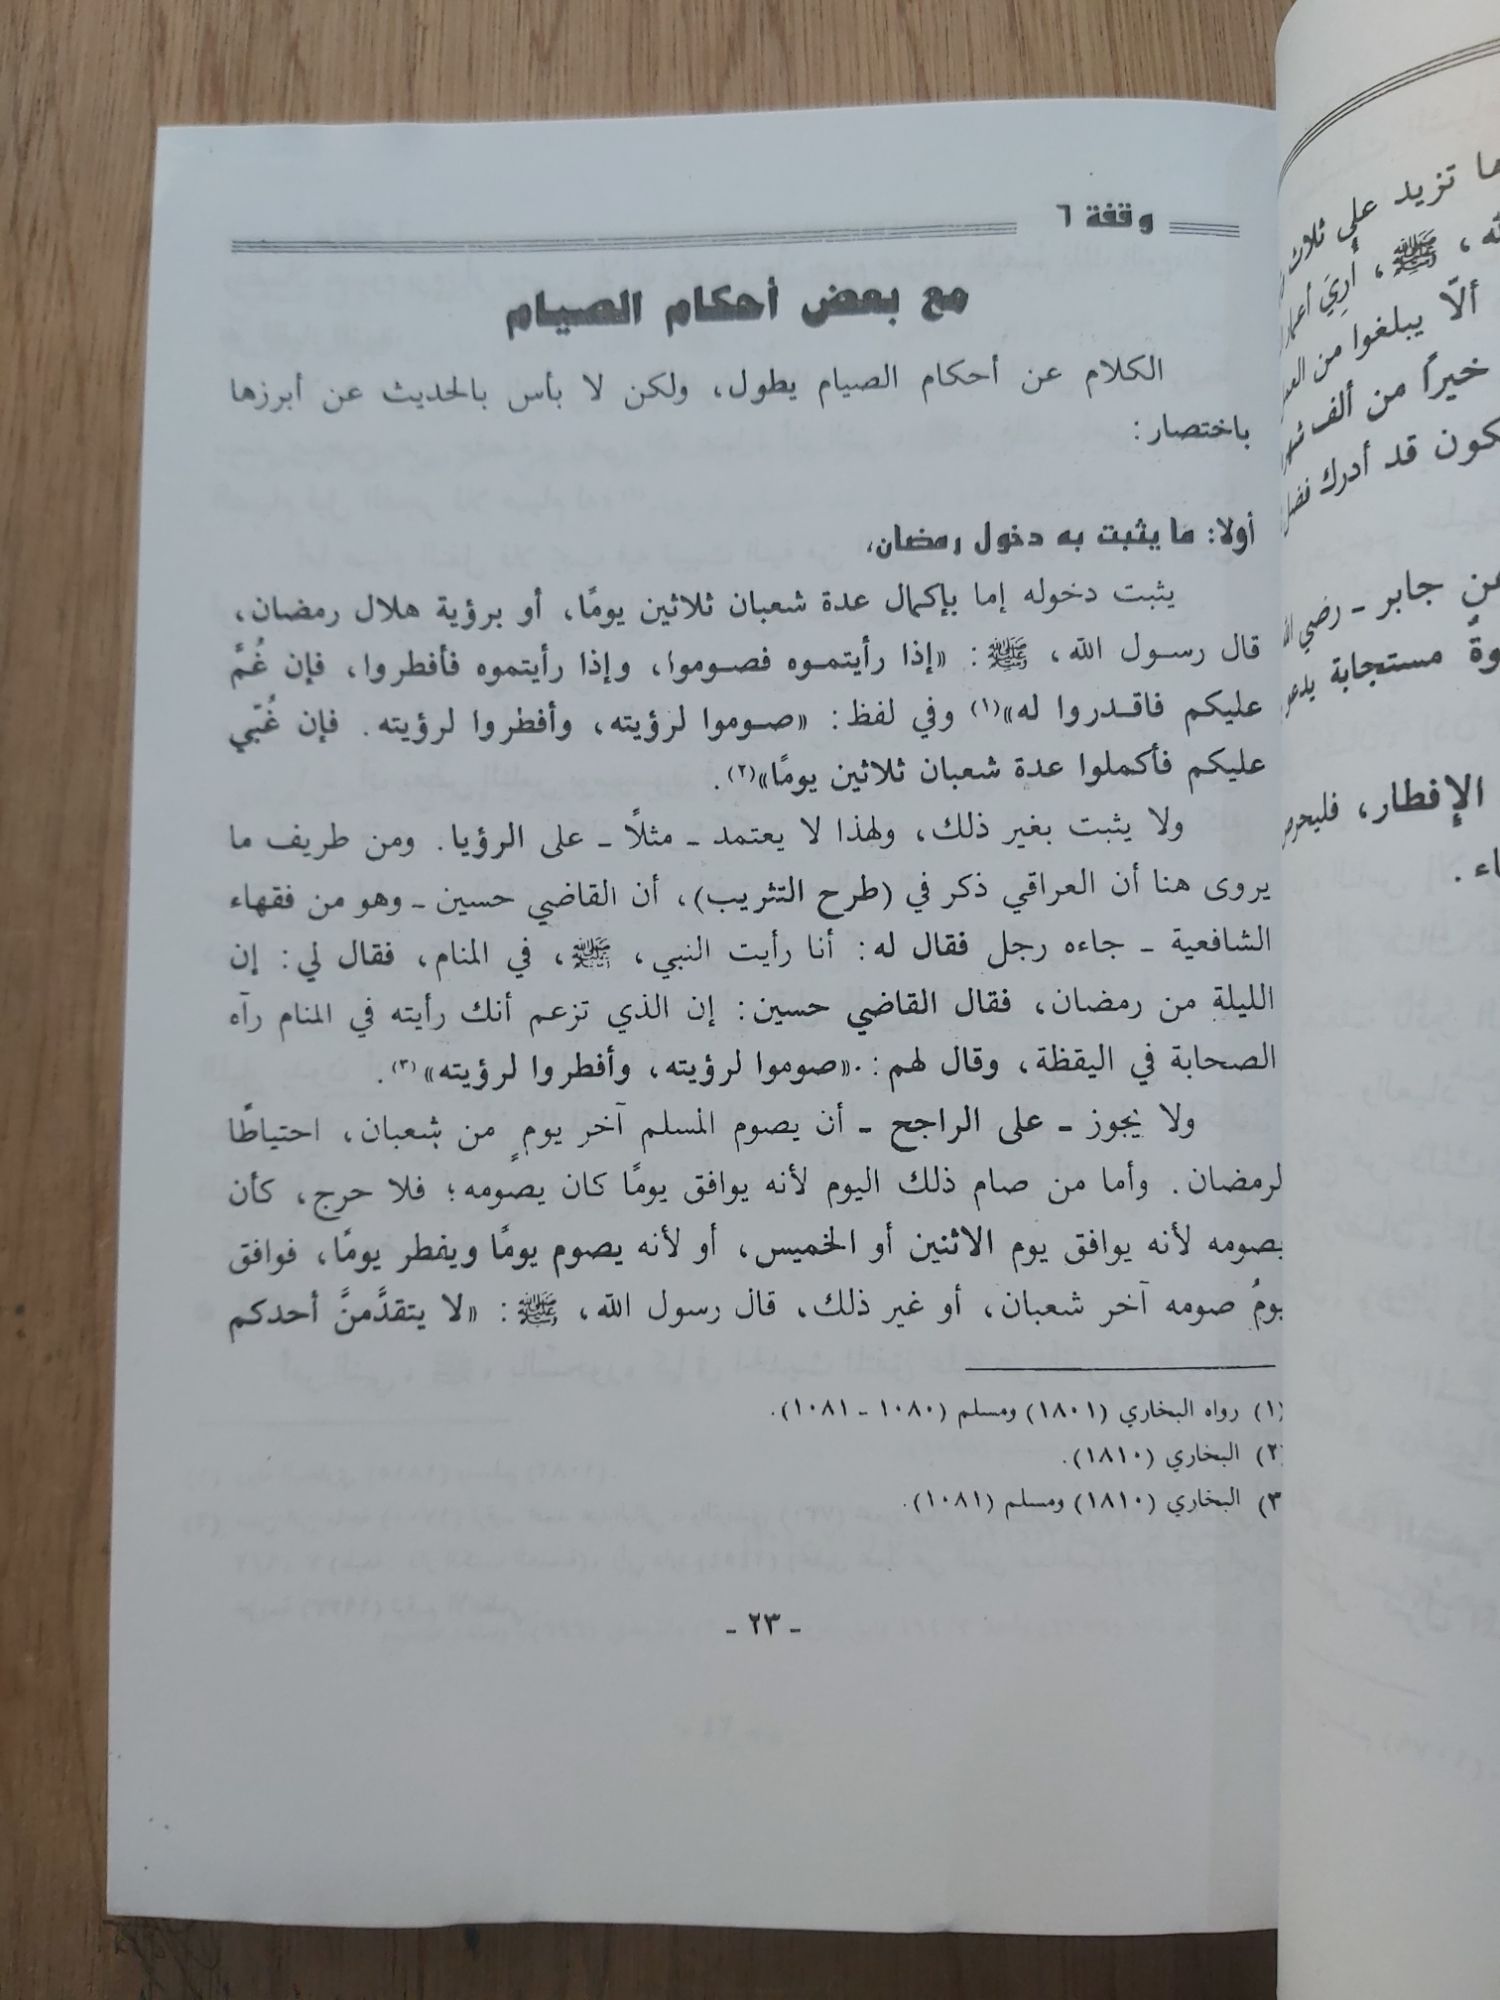 وقفة ٦
مع بعض أحكام الصيام
الكلام عن أحكام الصيام يطول، ولكن لا بأس بالحديث عن أبرزها
باختصار:
أولا: ما يثبت به دخول رمضان،
يثبت دخوله إما بإكمال عدة شعبان ثلاثين يومًا، أو برؤية هلال رمضان،
قال رسول الله، ﷺ: «إذا رأيتموه فصوموا، وإذا رأيتموه فأفطروا، فإن غُمَّ
عليكم فاقدروا له»(١) وفي لفظ: «صوموا لرؤيته، وأفطروا لرؤيته. فإن غُبّي
عليكم فأكملوا عدة شعبان ثلاثين يومًا»(٢).
ولا يثبت بغير ذلك، ولهذا لا يعتمد - مثلاً - على الرؤيا. ومن طريف ما
يروى هنا أن العراقي ذكر في (طرح التثريب)، أن القاضي حسين - وهو من فقهاء
الشافعية - جاءه رجل فقال له: أنا رأيت النبي، ﷺ، في المنام، فقال لي: إن
الليلة من رمضان، فقال القاضي حسين: إن الذي تزعم أنك رأيته في المنام رآه
الصحابة في اليقظة، وقال لهم: «صوموا لرؤيته، وأفطروا لرؤيته»(٣).
ولا يجوز - على الراجح - أن يصوم المسلم آخر يومٍ من شعبان، احتياطًا
لرمضان. وأما من صام ذلك اليوم لأنه يوافق يومًا كان يصومه؛ فلا حرج، كأن
يصومه لأنه يوافق يوم الاثنين أو الخميس، أو لأنه يصوم يومًا ويفطر يومًا، فوافق
يومُ صومه آخر شعبان، أو غير ذلك، قال رسول الله، ﷺ: «لا يتقدَّمنَّ أحدكم
(١) رواه البخاري (١٨٠١) ومسلم (١٠٨٠ - ١٠٨١).
(٢) البخاري (١٨١٠).
(٣) البخاري (١٨١٠) ومسلم (١٠٨١).
- ٢٣ -
تزيد على ثلاث
، ﷺ، أُرِيَ
ألّا يبلغوا من
خيراً من ألف
قد أدرك
جابر - رضي
مستجابة
الإفطار،